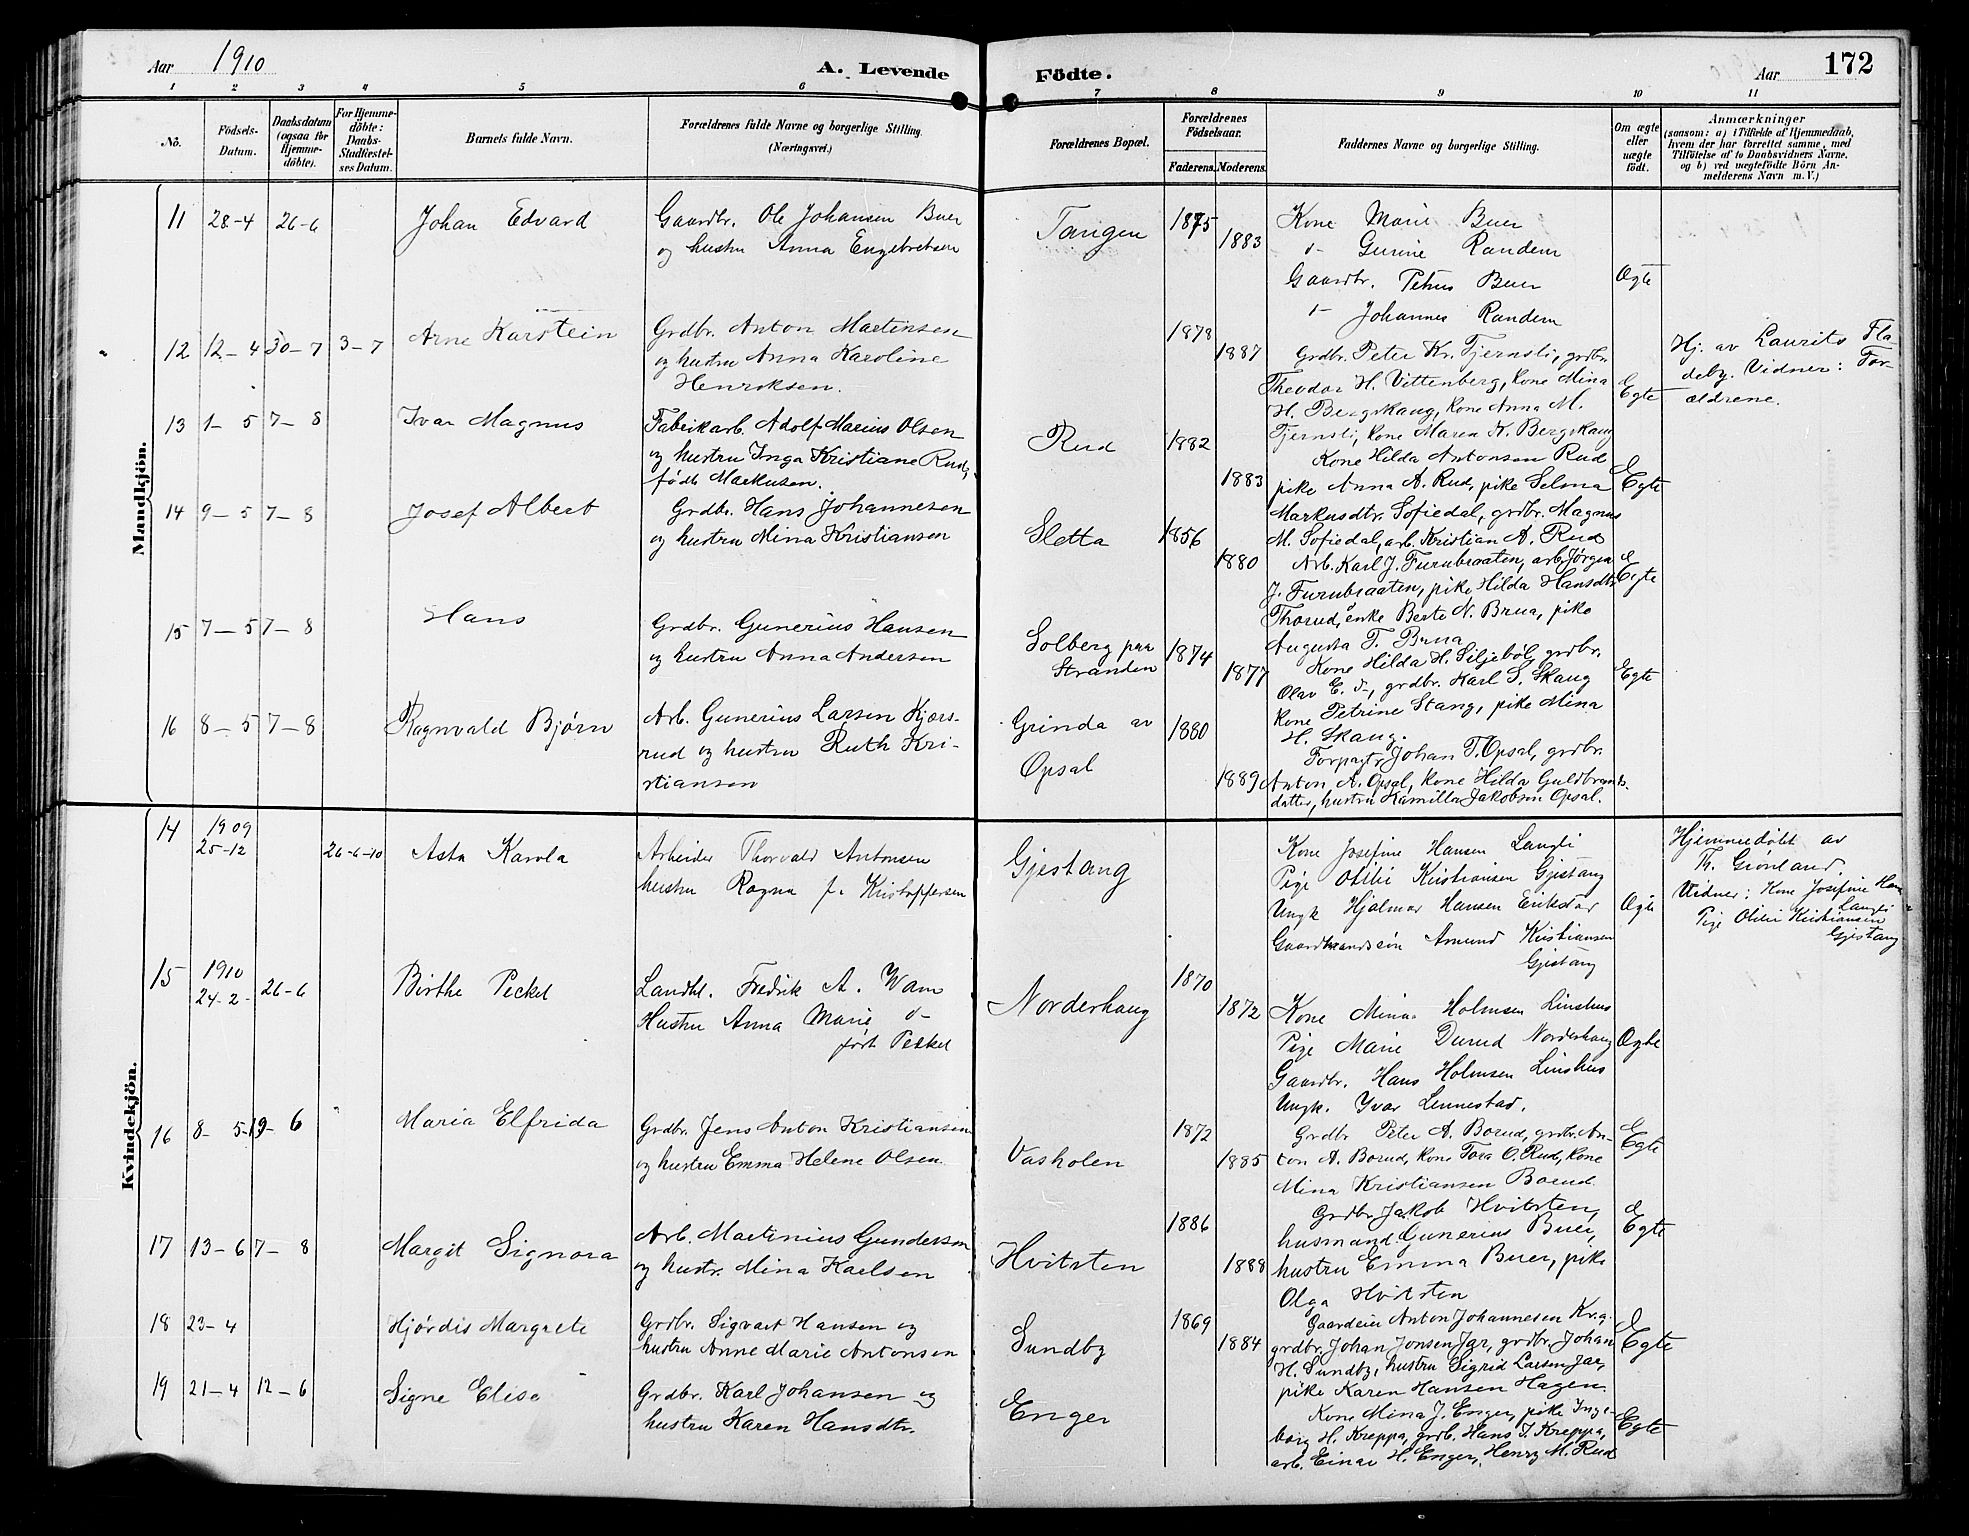 Aar 1910
A. Levende Födte.
Aar 172
1 2 3 4 5 6 7 8 9 10 11
No.
Födsels-Datum.
Daabsdatum (ogsaa for Hjemme-döbte).
For Hjemme-döbte: Daabs-Stadfæstel-ses Datum.
Barnets fulde Navn.
Forældrenes fulde Navne og borgerlige Stilling.
(Næringsvei.)
Forældrenes Bopæl.
Forældrenes Födselsaar.
Faderens. Moderens.
Faddernes Navne og borgerlige Stilling.
Om ægte eller uægte födt.
Anmærkninger
(saasom: a) i Tilfælde af Hjemmedaab,
hvem der har forrettet samme, med
Tilföielse af to Daabsvidners Navne,
og b) ved uægtefödte Börn An-
melderens Navn m. V.)
Mandkjön.
11 28-4 26-6 Johan Edvard
Gaardbr. Ole Johansen Buer
og hustru Anna Engebretsen
Tangen 1875 1883
Kone Marie Buer
d- Gurine Randem
Gaardbr. Petrus Buer
d- Johannes Randem
Ægte
12 12-4 30-7 3-7 Arne Karstein
Grdbr. Anton Martinsen
og hustru Anna Karoline
Henriksen.
1878 1887
Grdbr. Peter Kr. Tjernsli, grdbr.
Theodor H. Vittenberg, kone Mina
H. Bergskaug, kone Anna M.
Tjernsli, kone Maren K. Bergskaug
Egte
Hj. av Laurits Fla-
deby. Vidner: For-
ældrene.
13 1-5 7-8 Ivar Magnus
Fabrikarb. Adolf Marius Olsen
og hustru Inga Kristiane Rud,
født Markusen.
Rud 1882 1883
Kone Hilda Antonsen Rud
pike Anna A. Rud, pike Selma
Markusdtr. Sofiedal, grdbr. Magnus
M. Sofiedal, arb. Kristian A. Rud
Egte
14 9-5 7-8 Josef Albert
Grdbr. Hans Johannesen
og hustru Mina Kristiansen
Sletta 1856 1880
Arb. Karl J. Furubraaten, arb. Jørgen
J. Furubraaten, pike Hilda Hansdtr.
Thorud, enke Berte N. Brua, pike
Augusta T. Brua
Egte
15 7-5 7-8 Hans
Grdbr. Gunerius Hansen
og hustru Anna Andersen
Solberg paa
Stranden
1874 1877
Kone Hilda H. Siljeböl, grdbr.
Olav E. d-, grdbr. Karl S. Skaug
kone Petrine Stang, pike Mina
H. Skaug.
Egte
16 8-5 7-8 Ragnvald Bjørn
Arb. Gunerius Larsen Kjærs-
rud og hustru Ruth Kri-
stiansen
Grinda av
Opsal
1880 1889
Forpagtr. Johan T. Opsal, grdbr.
Anton A. Opsal, kone Hilda Guldbrands-
datter, hustru Kamilla Jakobsen Opsal.
Kvindekjön.
14 1909 25-12 26-6-10 Asta Karola
Arbeider Thorvald Antonsen
hustru Ragna f. Kristoffersen
Gjestang
Kone Josefine Hansen Langli
Pige Otilie Kristiansen Gjestang
Ungk Hjalmar Hansen Erikstad
Gaardmandssøn Amund Kristiansen
Gjestang
Ægte
Hjemmedøbt av
Th. Grönland.
Vidner: Kone Josefine Han
Langli
Pige Otilie Kristiansen
Gjestang
15 1910 24-2- 26-6 Birthe Peckel
Landhl. Fredrik A. Wam
Hustru Anna Marie d-
født Peckel
Norderhaug 1870 1872
Kone Mina Holmsen Linshus
Pige Marie Durud Norderhaug
Gaardbr. Hans Holmsen Linshus
Ungk. Yvar Lennestad.
Ægte
16 8-5- 19-6 Maria Elfrida
Grdbr. Jens Anton Kristiansen
og hustru Emma Helene Olsen.
Vasholen 1872 1885
Grdbr Peter A. Borud, grdbr. An-
ton A. Borud, kone Tora O. Rud, kone
Mina Kristiansen Borud
Egte
17 13-6 7-8 Margit Signora
Arb. Martinius Gundersen
og hustr. Mina Karlsen
Hvitsten 1886 1888
Grdbr. Jakob Hvitsten,
husmand Gunerius Buer,
hustru Emma Buer, pike
Olga Hvitsten
Egte
18 23-4 Hjørdis Margrete
Grdbr. Sigvart Hansen og
hustru Anne Marie Antonsen
Sundby 1869 1884
Gaardeier Anton Johannesen Kr.a.
grdbr. Johan Jonsen Jar, grdbr. Johan
H. Sundby, hustru Sigrid Larsen Jar,
pike Karen Hansen Hagen.
Egte
19 21-4 12-6 Signe Elise
Grdbr. Karl Johansen og
hustru Karen Hansdtr.
Enger
Kone Mina J. Enger, pike Inge-
borg H. Kreppa, grdb. Hans J. Kreppa,
arb. Einar H. Enger, Henry M. Rud
Egte